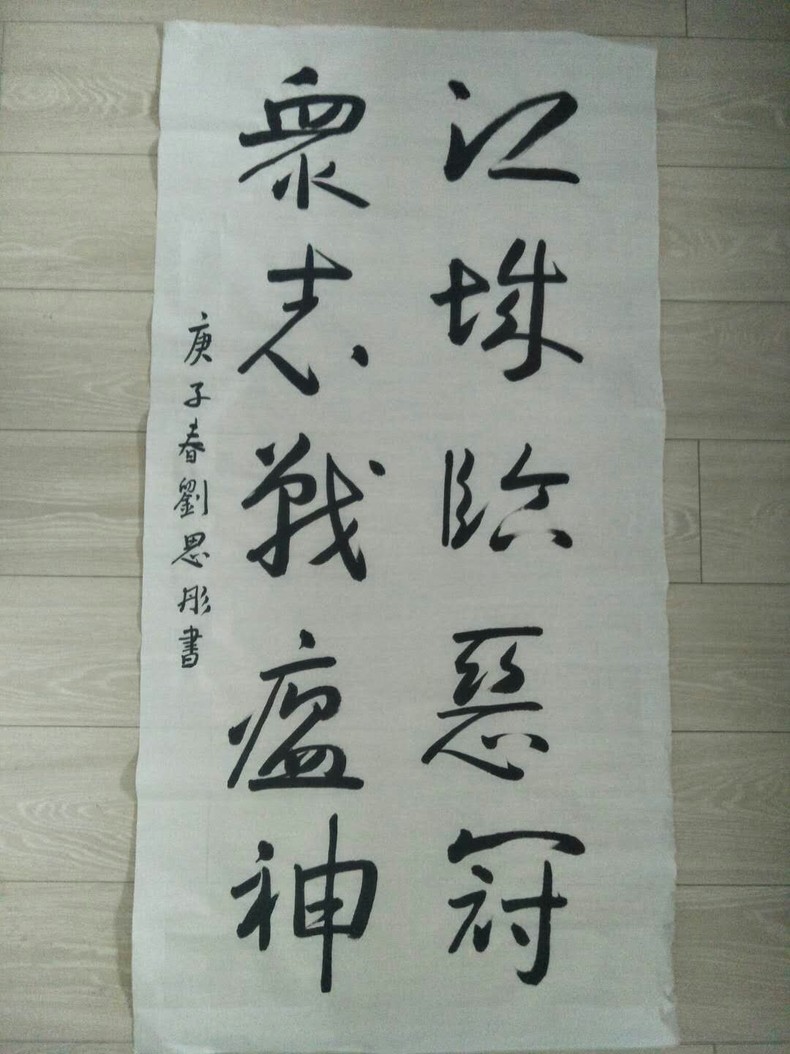 江城臨惡冠
衆志戰瘟神
庚子春劉思彤書